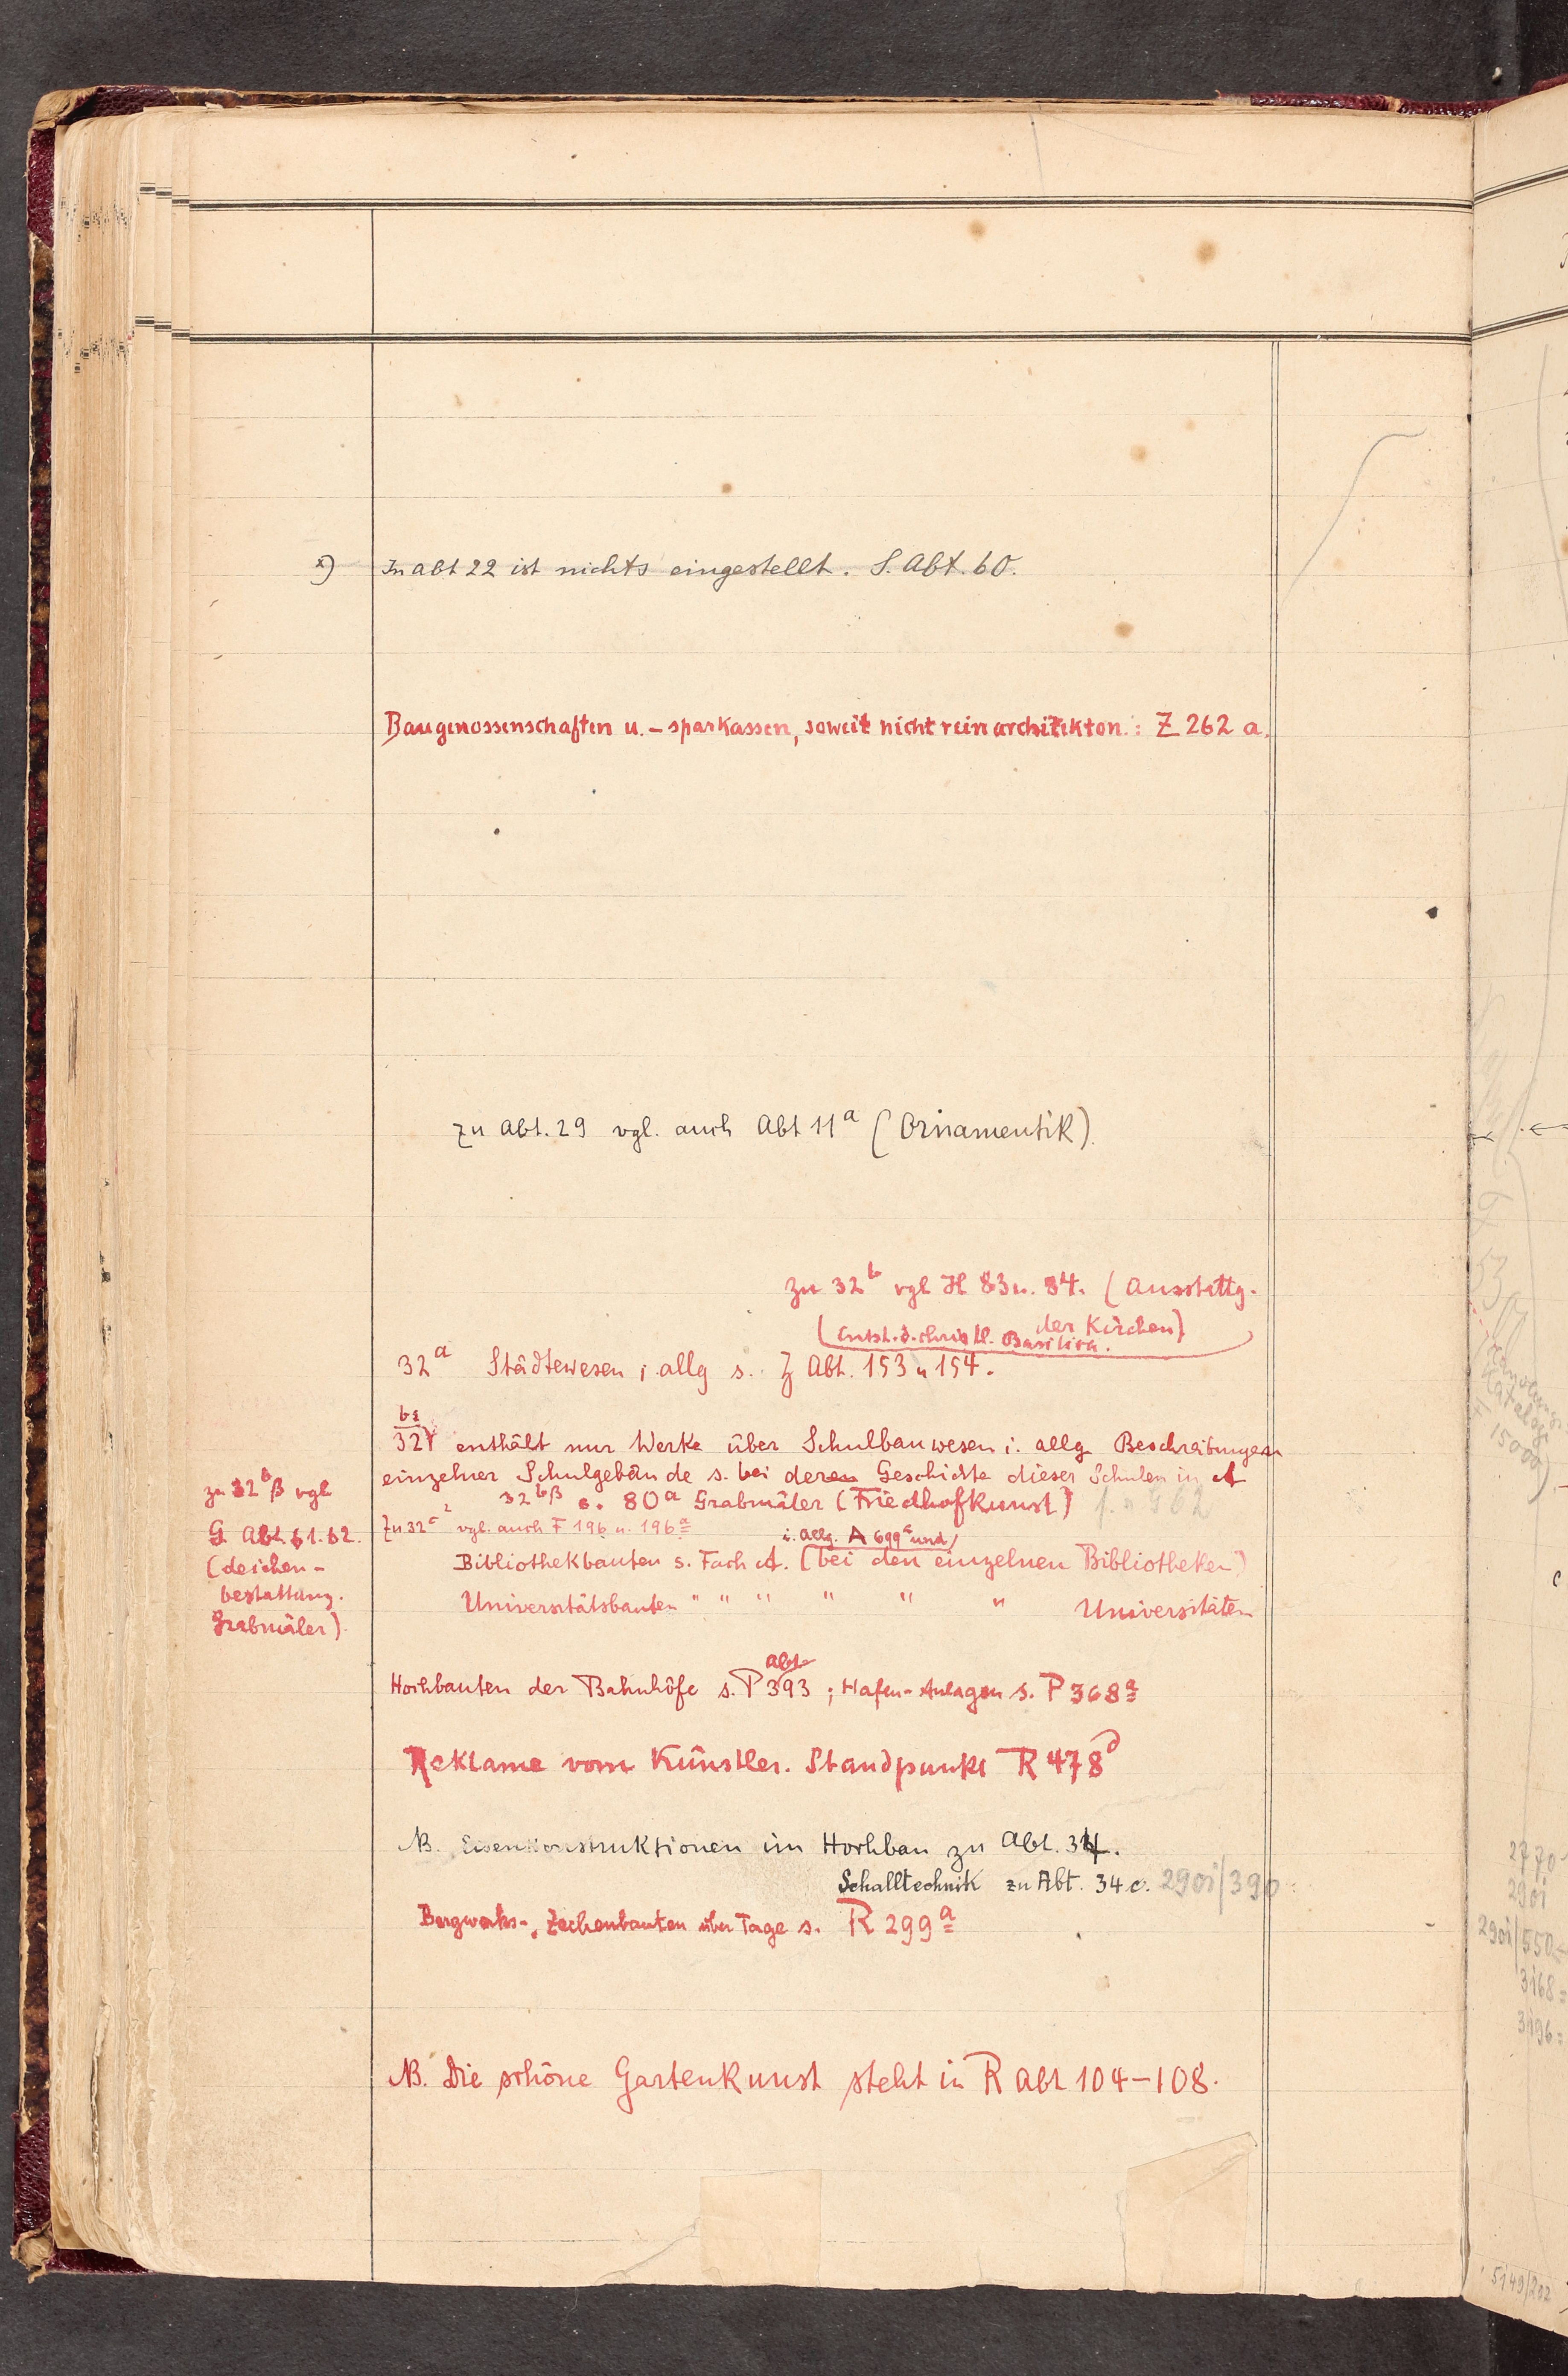 x) In Abt 22 ist nichts eingestellt. S. Abt. 60.
Baugenossenschaften u. - sparkassen, soweit nicht rein architekton.: Z 262 a.
zu Abt. 29 vgl. auch Abt 11a (Ornamentik).
zu 32b vgl H 83 u. 84. (Ausstattg.
der Kirchen)
(Entst. d. christl. Basilica.
32a Städtewesen i. allg s. Z Abt. 153 u 154.
32γ enthält nur Werke über Schulbauwesen i. allg Beschreibungen
einzelner Schulgebäude s. bei deren Geschichte dieser Schulen in A
32bβ s. 80a Grabmäler (Friedhofkunst) s. a G 62
zu 32bβ vgl
G Abt 61. 62.
(Leichen-
bestattung.
Grabmäler).
Zu 32c2 vgl. auch F 196 u. 196a
i. allg. A 699a und
Bibliothekbauten s. Fach A. (bei den einzelnen Bibliotheken)
Universitätsbauten " " " " " " Universitäten
Abt.
Hochbauten der Bahnhöfe s. P 393 ; Hafen-Anlagen s. P 368a
Reklame vom Künstler. Standpunkt R 478d
NB. Eisenkonstruktionen im Hochbau zu Abt. 34.
Schalltechnik zu Abt. 34c. 290i/390
Bergwerks-, Zechenbauten über Tage s. R 299a
NB. Die schöne Gartenkunst steht in R Abt 104-108.
2770
290i
290i/550
3168=
3196=
5149/202